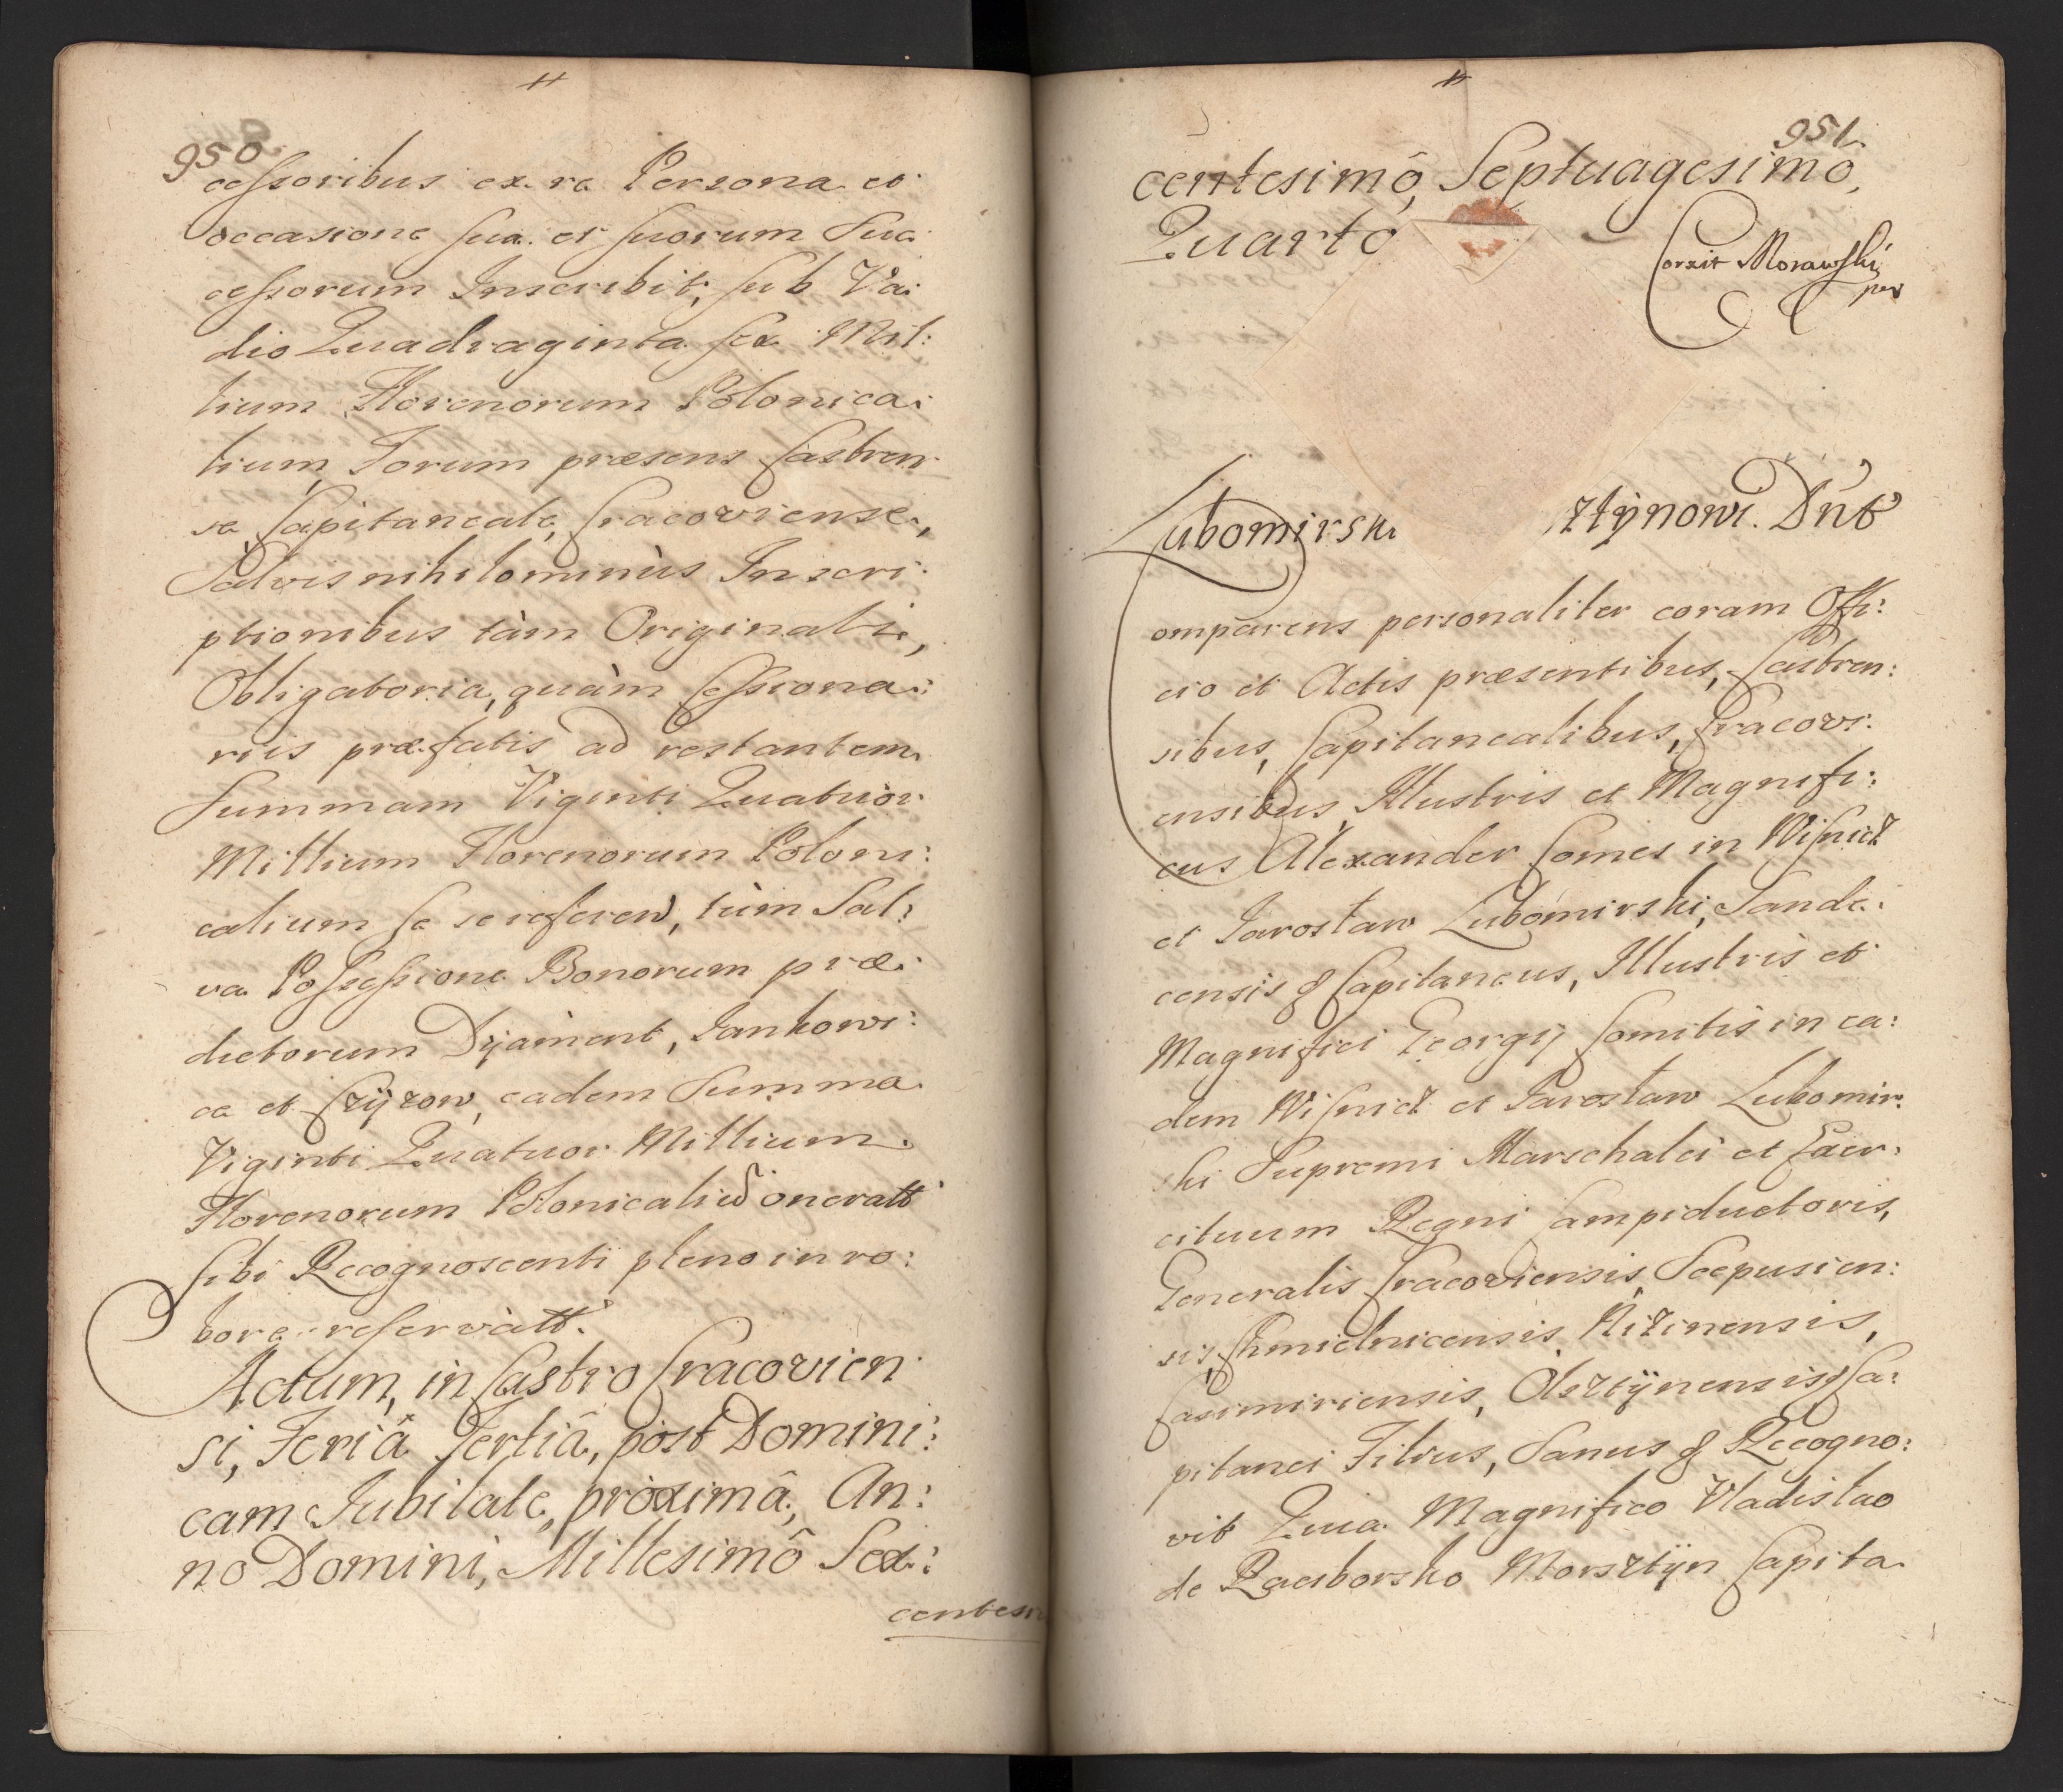 950
cessoribus ex re Persona et
occasione sua et suorum Suc:
cessorum Inscribit, sub Va:
dio Quadraginta sex Mil:
lium Florenorum Polonica:
lium, Forum præsens Castren
se, Capitaneale, Cracoviense,
Salvis nihilominùs Inscri:
ptionibus tàm Originali,
Obligatoria, quàm Cessiona:
riis præfatis ad restantem
Summam Viginti Quatuor
Millium Florenorum Poloni:
calium se se referen, tùm Sal:
va Possessione Bonorum præ:
dictorum Dyament, Jankowi:
ce et Czyzow, eadem Summa
Viginti Quatuor Millium
Florenorum Polonicaliu oneratt
sibi Recognoscenti pleno in ro:
bore reservatt.
Actum, in Castro Cracovien
si, Feriâ Tertiâ, post Domini:
cam Jubilate, proximâ, An:
no Domini, Millesimô Sex:
centesi
951
centesimô, Septuagesimô,
Quarto
Corxit Morawski
mpr
Lubomirski ztynowi. Dnt
Comparens personaliter coram Offi:
cio et Actis præsentibus, Castren:
sibus, Capitanealibus, Cracovi:
ensibus, Illustris et Magnifi:
cus Alexander Comes in Wisnicz
et Jaroslaw Lubomirski, Sande:
censis & Capitaneus, Illustris et
Magnifici Georgij Comitis in ea:
dem Wisnicz et Jaroslaw Lubomir:
ski Supremi Marschalci et Exer:
cituum Regni Campiductoris,
Generalis Cracoviensis, Scepusien:
sis, Chmielnicensis, Nizinensis,
Casimiriensis, Olsztynensis & Ca:
pitanei Filius, Sanus & Recogno:
vit Quia Magnifico Vladislao
de Raciborsko Morsztyn Capita